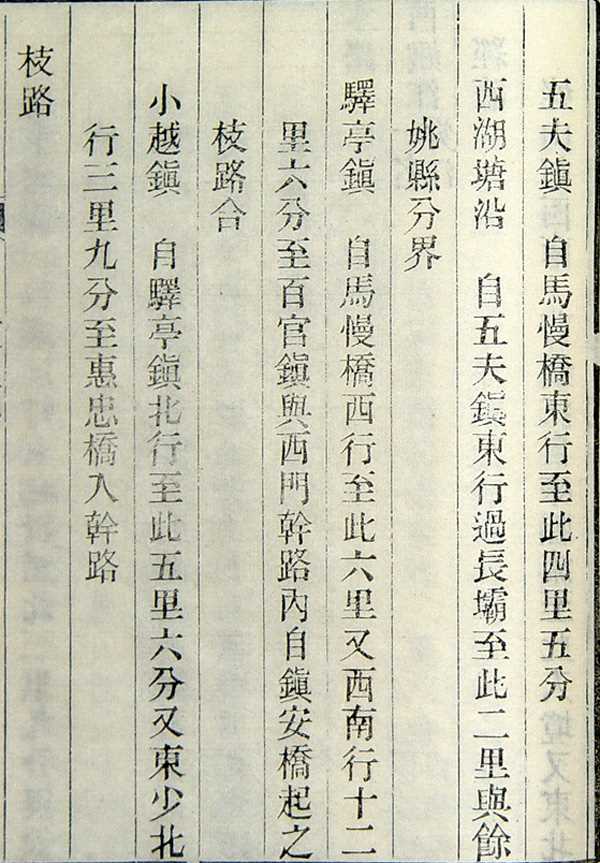 五夫鎭　自馬慢橋東行至此四里五分
西湖塘沿　自五夫鎭東行過長壩至此二里與餘
姚縣分界
驛亭鎭　自馬慢橋西行至此六里又西南行十二
里六分至百官鎭與西門幹路內自鎭安橋起之
枝路合
小越鎭　自驛亭鎭北行至此五里六分又東少北
行三里九分至惠忠橋入幹路
枝路